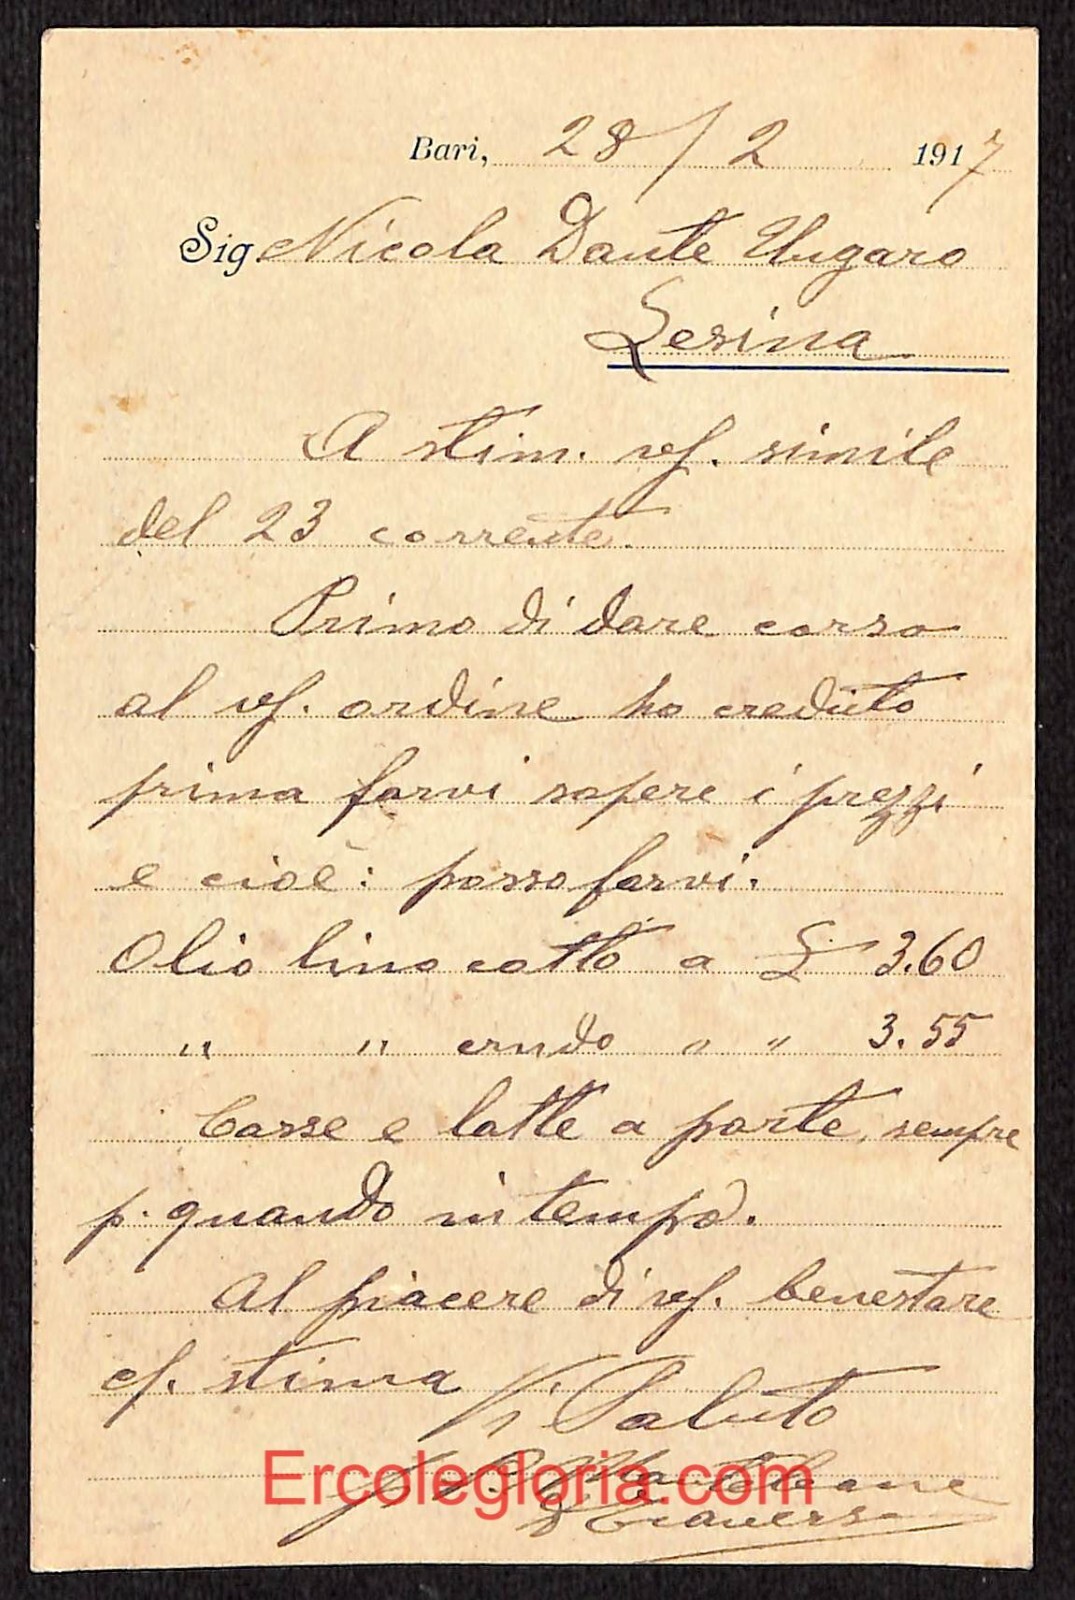 Bari, 28/2 1917
Sig Nicola Dante Ungaro
Lesina
A stim. vs. simile
del 23 corrente.
Primo di dare corso
al vs. ordine ho creduto
prima farvi sapere i prezzi
e cioè: posso farvi.
Olio lino cotto a £ 3.60
" " crudo " " 3.55
Casse e latte a parte, sempre
p. quando in tempo.
Al piacere di vs. benestare
cs. stima Vi Saluto
Monteleone
Ercolegloria.com